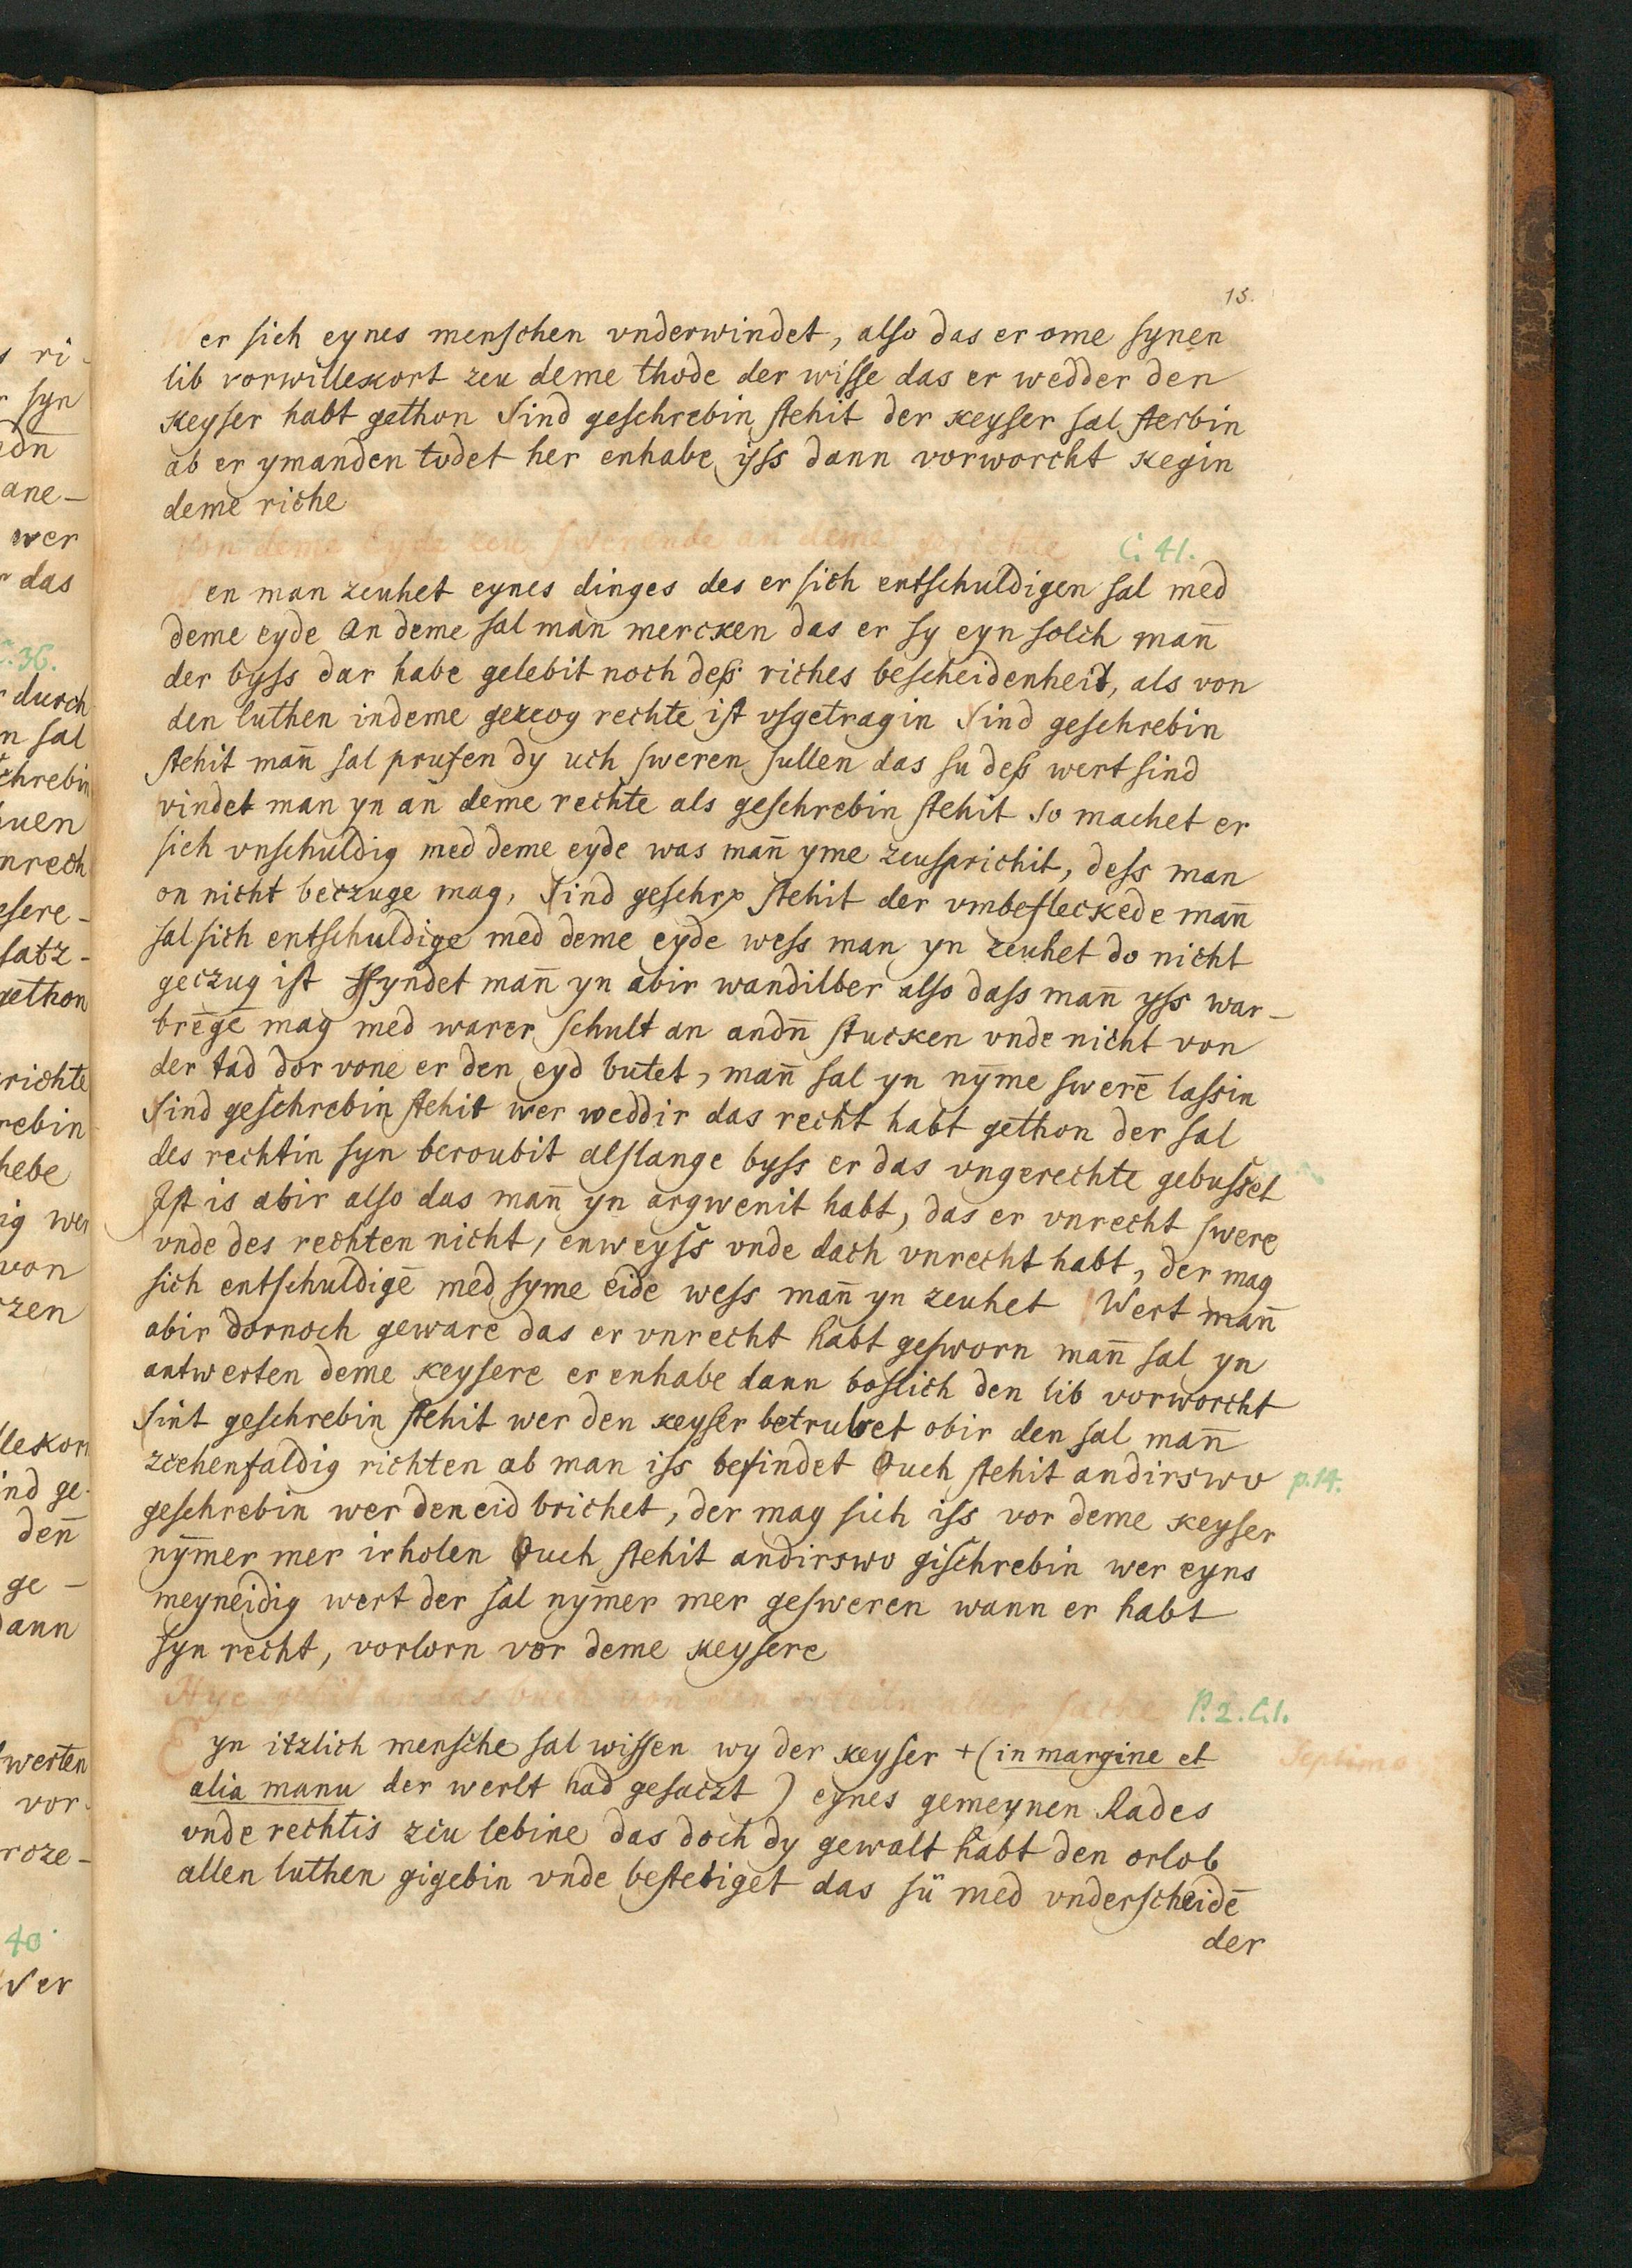 15.
er sich eynes menschen vnderwindet, also das er ome synen
lib vorwillekort zcu deme thode der wisse das er wedder den
keyser habt gethon Sind geschrebin stehit der keyser sal sterbin
ab er ymanden todet her enhabe yss dann vorworcht kegin
deme riche
Von deme Eyde zcu swerende an deme gerichte C. 41.
en man zcuhet eynes dinges des er sich entschuldigen sal med
deme eyde An deme sal man mercken das er sy eyn solch man̄
der byss dar habe gelebit noch deß riches bescheidenheit, als von
den luthen indeme gezcog rechte ist vsgetragin Sind geschrebin
stehit man̄ sal prufen dy uch sweren sullen das su deß wert sind
vindet man yn an deme rechte als geschrebin stehit so machet er
sich vnschuldig med deme eyde was man̄ yme zcusprichit, dess man
on nicht beczuge mag, Sind geschr stehit der vmbefleckede man̄
sal sich entschuldige med deme eyde wess man yn zcuhet do nicht
geczug ist ffyndet man̄ yn abir wandilber also dass man̄ yss war-
brēgē mag med warer schult an andn̄ stucken vnde nicht von
der tad dor vone er den eyd butet, man̄ sal yn nȳme swerē lassin
Sind geschrebin stehit wer weddir das recht habt gethon der sal
des rechtin syn beroubit alslange byss er das vngerechte gebusset
Ist is abir also das man̄ yn argwenit habt, das er vnrecht swere
vnde des rechten nicht, enweyss vnde dach vnrecht habt, der mag
sich entschuldigē med syme eide wess man̄ yn zcuhet Wert man̄
abir dornoch geware das er vnrecht habt gesworn man̄ sal yn
antwerten deme keysere er enhabe dann boslich den lib vorworcht
Sint geschrebin stehit wer den keyser betrubet obir den sal man̄
zcehenfaldig richten ab man iss befindet Ouch stehit andirswo p. 14.
geschrebin wer den eid brichet, der mag sich iss vor deme keyser
nȳmer mer irholen Ouch stehit andirswo gischrebin wer eyns
meyneidig wert der sal nȳmer mer gesweren wann er habt
syn recht, vorlorn vor deme keysere
Hye gehit an das buch von den orteiln aller sache P. 2. C. 1.
Eyn itzlich mensche sal wissen wy der keyser + (in margine et Septimo
alia manu der werlt had gesaczt) eynes gemeynen Rades
vnde rechtis zcu lebine das doch dy gewalt habt den orlob
allen luthen gigebin vnde bestetiget das sü med vnderscheidē
der